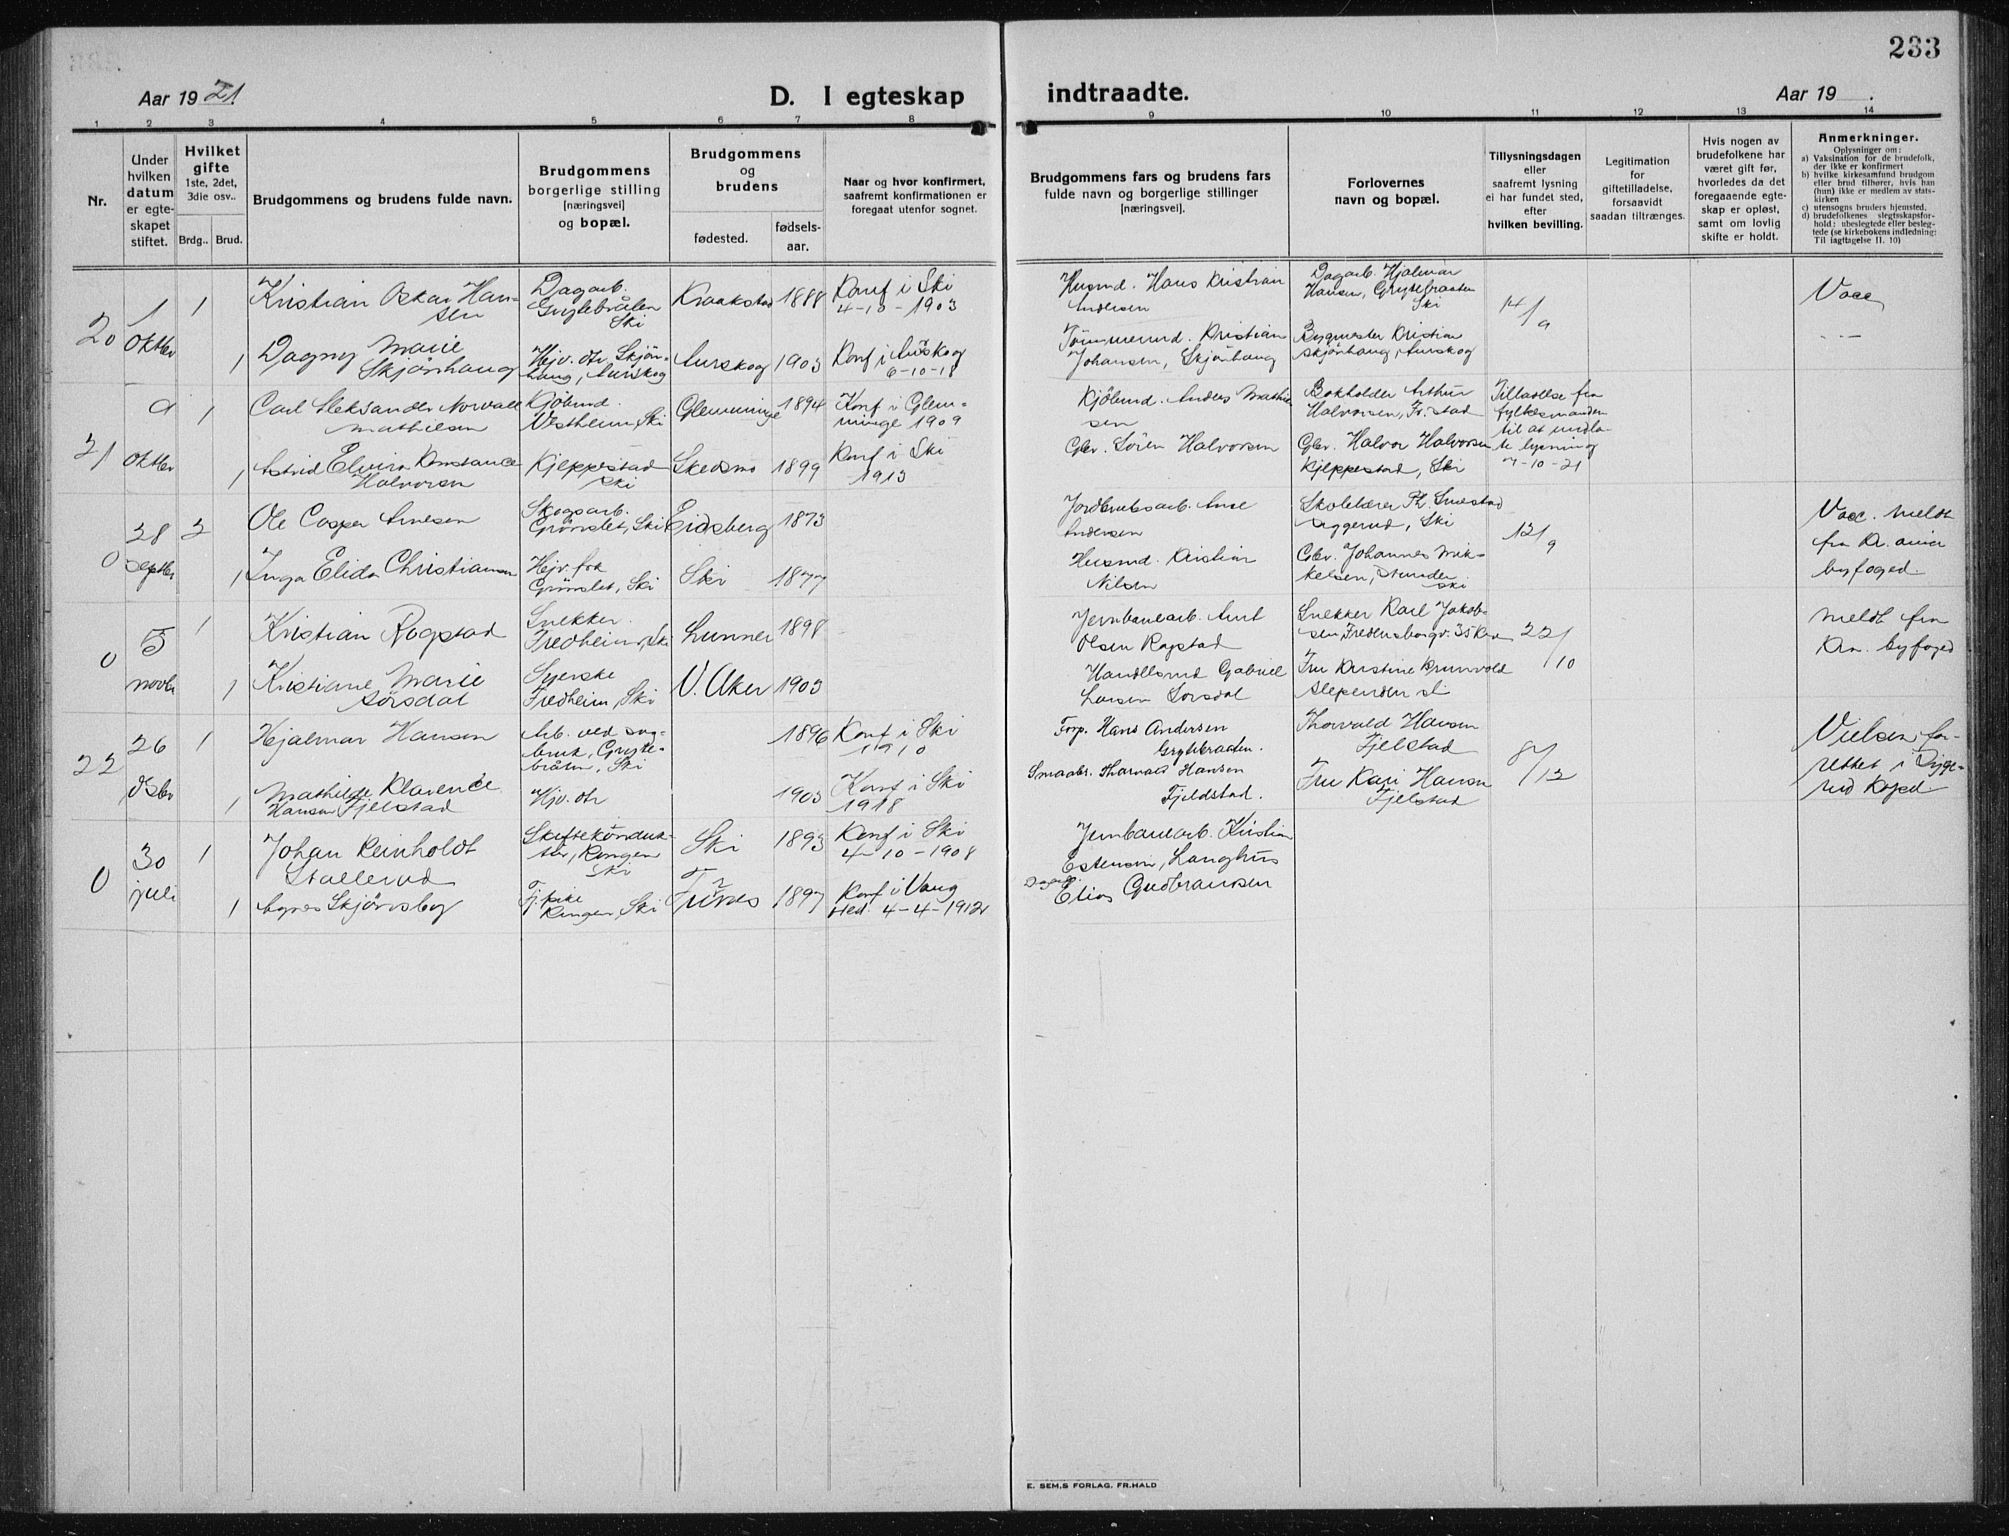 233
Aar 19 21
D. I egteskap
indtraadte.
Aar 19
1 2 3 4 5 6 7 8 9 10 11 12 13 14
Nr.
Under
hvilken
datum
er egte-
skapet
stiftet.
Hvilket
gifte
1ste, 2det,
3die osv..
Brdg..
Brud.
Brudgommens og brudens fulde navn.
Brudgommens
borgerlige stilling
[næringsvei]
og bopæl.
Brudgommens
og
brudens
fødested.
fødsels-
aar.
Naar og hvor konfirmert,
saafremt konfirmationen er
foregaat utenfor sognet.
Brudgommens fars og brudens fars
fulde navn og borgerlige stillinger
[næringsvei].
Forlovernes
navn og bopæl.
Tillysningsdagen
eller
saafremt lysning
ei har fundet sted,
efter
hvilken bevilling.
Legitimation
for
giftetilladelse,
forsaavidt
saadan tiltrænges.
Hvis nogen av
brudefolkene har
været gift før,
hvorledes da det
foregaaende egte-
skap er opløst,
samt om lovlig
skifte er holdt.
Anmerkninger.
Oplysninger om:
a) Vaksination for de brudefolk,
der ikke er konfirmert
b) hvilke kirkesamfund brudgom
eller brud tilhører, hvis han
(hun) ikke er medlem av stats-
kirken
c) utensogns bruders hjemsted,
d) brudefolkenes slegtsskapsfor-
hold: ubeslegtede eller besleg-
tede (se kirkebokens indledning:
Til iagttagelse II. 10)
20
1
oktbr
1
Kristian Oskar Han-
sen
Dagarb.
Grytebråten
Ski
Kraakstad
1888
Konf i Ski
4-10-1903
Husmd. Hans Kristian
Andersen
Dagarb. Hjalmar
Hansen, Grytebraaten
Ski
14/9
Vacc
1
Dagny Marie
Skjønhaug
Hjv. dtr, Skjøn-
haug, Aurskog
Aurskog
1903
Konf i Aurskog
6-10-18
Tømmermd. Kristian
Johansen, Skjønhaug
Bygmester Kristian
Skjønhaug, Aurskog
21
9
oktbr
1
Carl Aleksander Norvald
Mathiesen
Kjøbmd.
Vestheim, Ski
Glemminge
1894
Konf i Glem-
minge 1909
Kjøbmd. Anders Mathie
sen
Bokholder Arthur
Halvorsen, Fr.stad
Tilladelse fra
fylkesmanden
til at undla-
te lysning
7-10-21
1
Astrid Elvira Konstance
Halvorsen
Kjeppestad
Ski
Skedsmo
1899
Konf i Ski
1913
Gbr. Søren Halvorsen
Gbr. Halvor Halvorsen
Kjeppestad, Ski
0
28
septbr
2
Ole Casper Arnesen
Skogsarb.
Grønslet, Ski
Eidsberg
1873
Jordbruksarb. Arne
Andersen
Skolelærer Th. Smestad
Siggerud, Ski
12/9
Vacc. Meldt
fra Kr.ania
byfoged.
1
Inga Elida Christiansen
Hjv. frk
Grønslet, Ski
Ski
1877
Husmd. Kristian
Nilsen
Gbr. Johannes Mik-
kelsen, Stunder
Ski
0
5
novbr
1
Kristian Rogstad
Snekker
Fredheim, Ski
Lunner
1898
Jernbanearb. Amt
Olsen Rogstad
Snekker Karl Jakob-
sen, Fredensborgv. 35 Kra
22/10
Meldt fra
Kra. byfoged
1
Kristiane Marie
Sørsdal
Syerske
Fredheim, Ski
V. Aker
1903
Handelsmd Gabriel
Larsen Sørsdal
Fru Kristine Brunvold
Slependen st
22
26
dsbr
1
Hjalmar Hansen
Arb. ved sag-
bruk, Gryte-
bråten, Ski
1896
Konf i Ski
1910
Forp. Hans Andersen
Grytebraaten.
Thorvald Hansen
Fjelstad
8/12
Vielsen for-
rettet i Sigge-
rud kapel.
1
Mathilde Klarence
Hansen Fjelstad
Hjv. dtr
1903
Konf i Ski
1918
Smaabr. Thorvald Hansen
Fjeldstad.
Fru Kari Hansen
Fjelstad
0
30
juli
1
Johan Reinholdt
Stallerud
Skiftekonduk-
tør, Ringen
Ski
Ski
1893
Konf i Ski
4-10-1908
Jernbanearb. Kristian
Estensen, Langhus
1
Agnes Skjønsby
Tj. pike
Ringen, Ski
Furnes
1897
Konf i Vang
Hed. 4-4-1912
Dagarb.
Elias Gudbransen
E. SEM,S FORLAG, FR.HALD